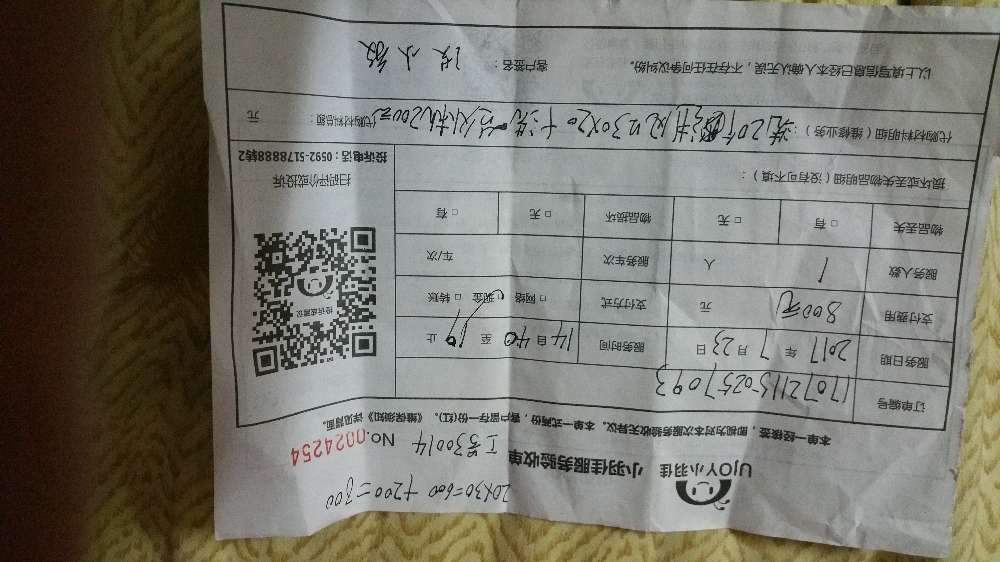 20×30=600 +200=800
UJOY小羽佳
小羽佳服务验收单
工号30014 No.0024254
本单一经续签，即视为对本次服务验收无异议。本单一式两份，客户留存一份(红)。《维保须知》详见背面。
订单编号 170721150257093
服务日期 2017 年 7 月 23 日 服务时间 14日40 至 19 止
支付费用 800元 元 支付方式 □ 网络 □ 现金 □ 转账
服务人数 1 人 服务车次 车/次
物品丢失 □ 有 □ 无 物品损坏 □ 无 □ 有
损坏或丢失物品明细（没有可不填）：
扫码评价或投诉
投诉电话：0592-5178888转2
代购材料明细（维修业务）：
代购材料总额： 元
以上填写信息已经本人确认无误，不存在任何争议纠纷。 客户签名：